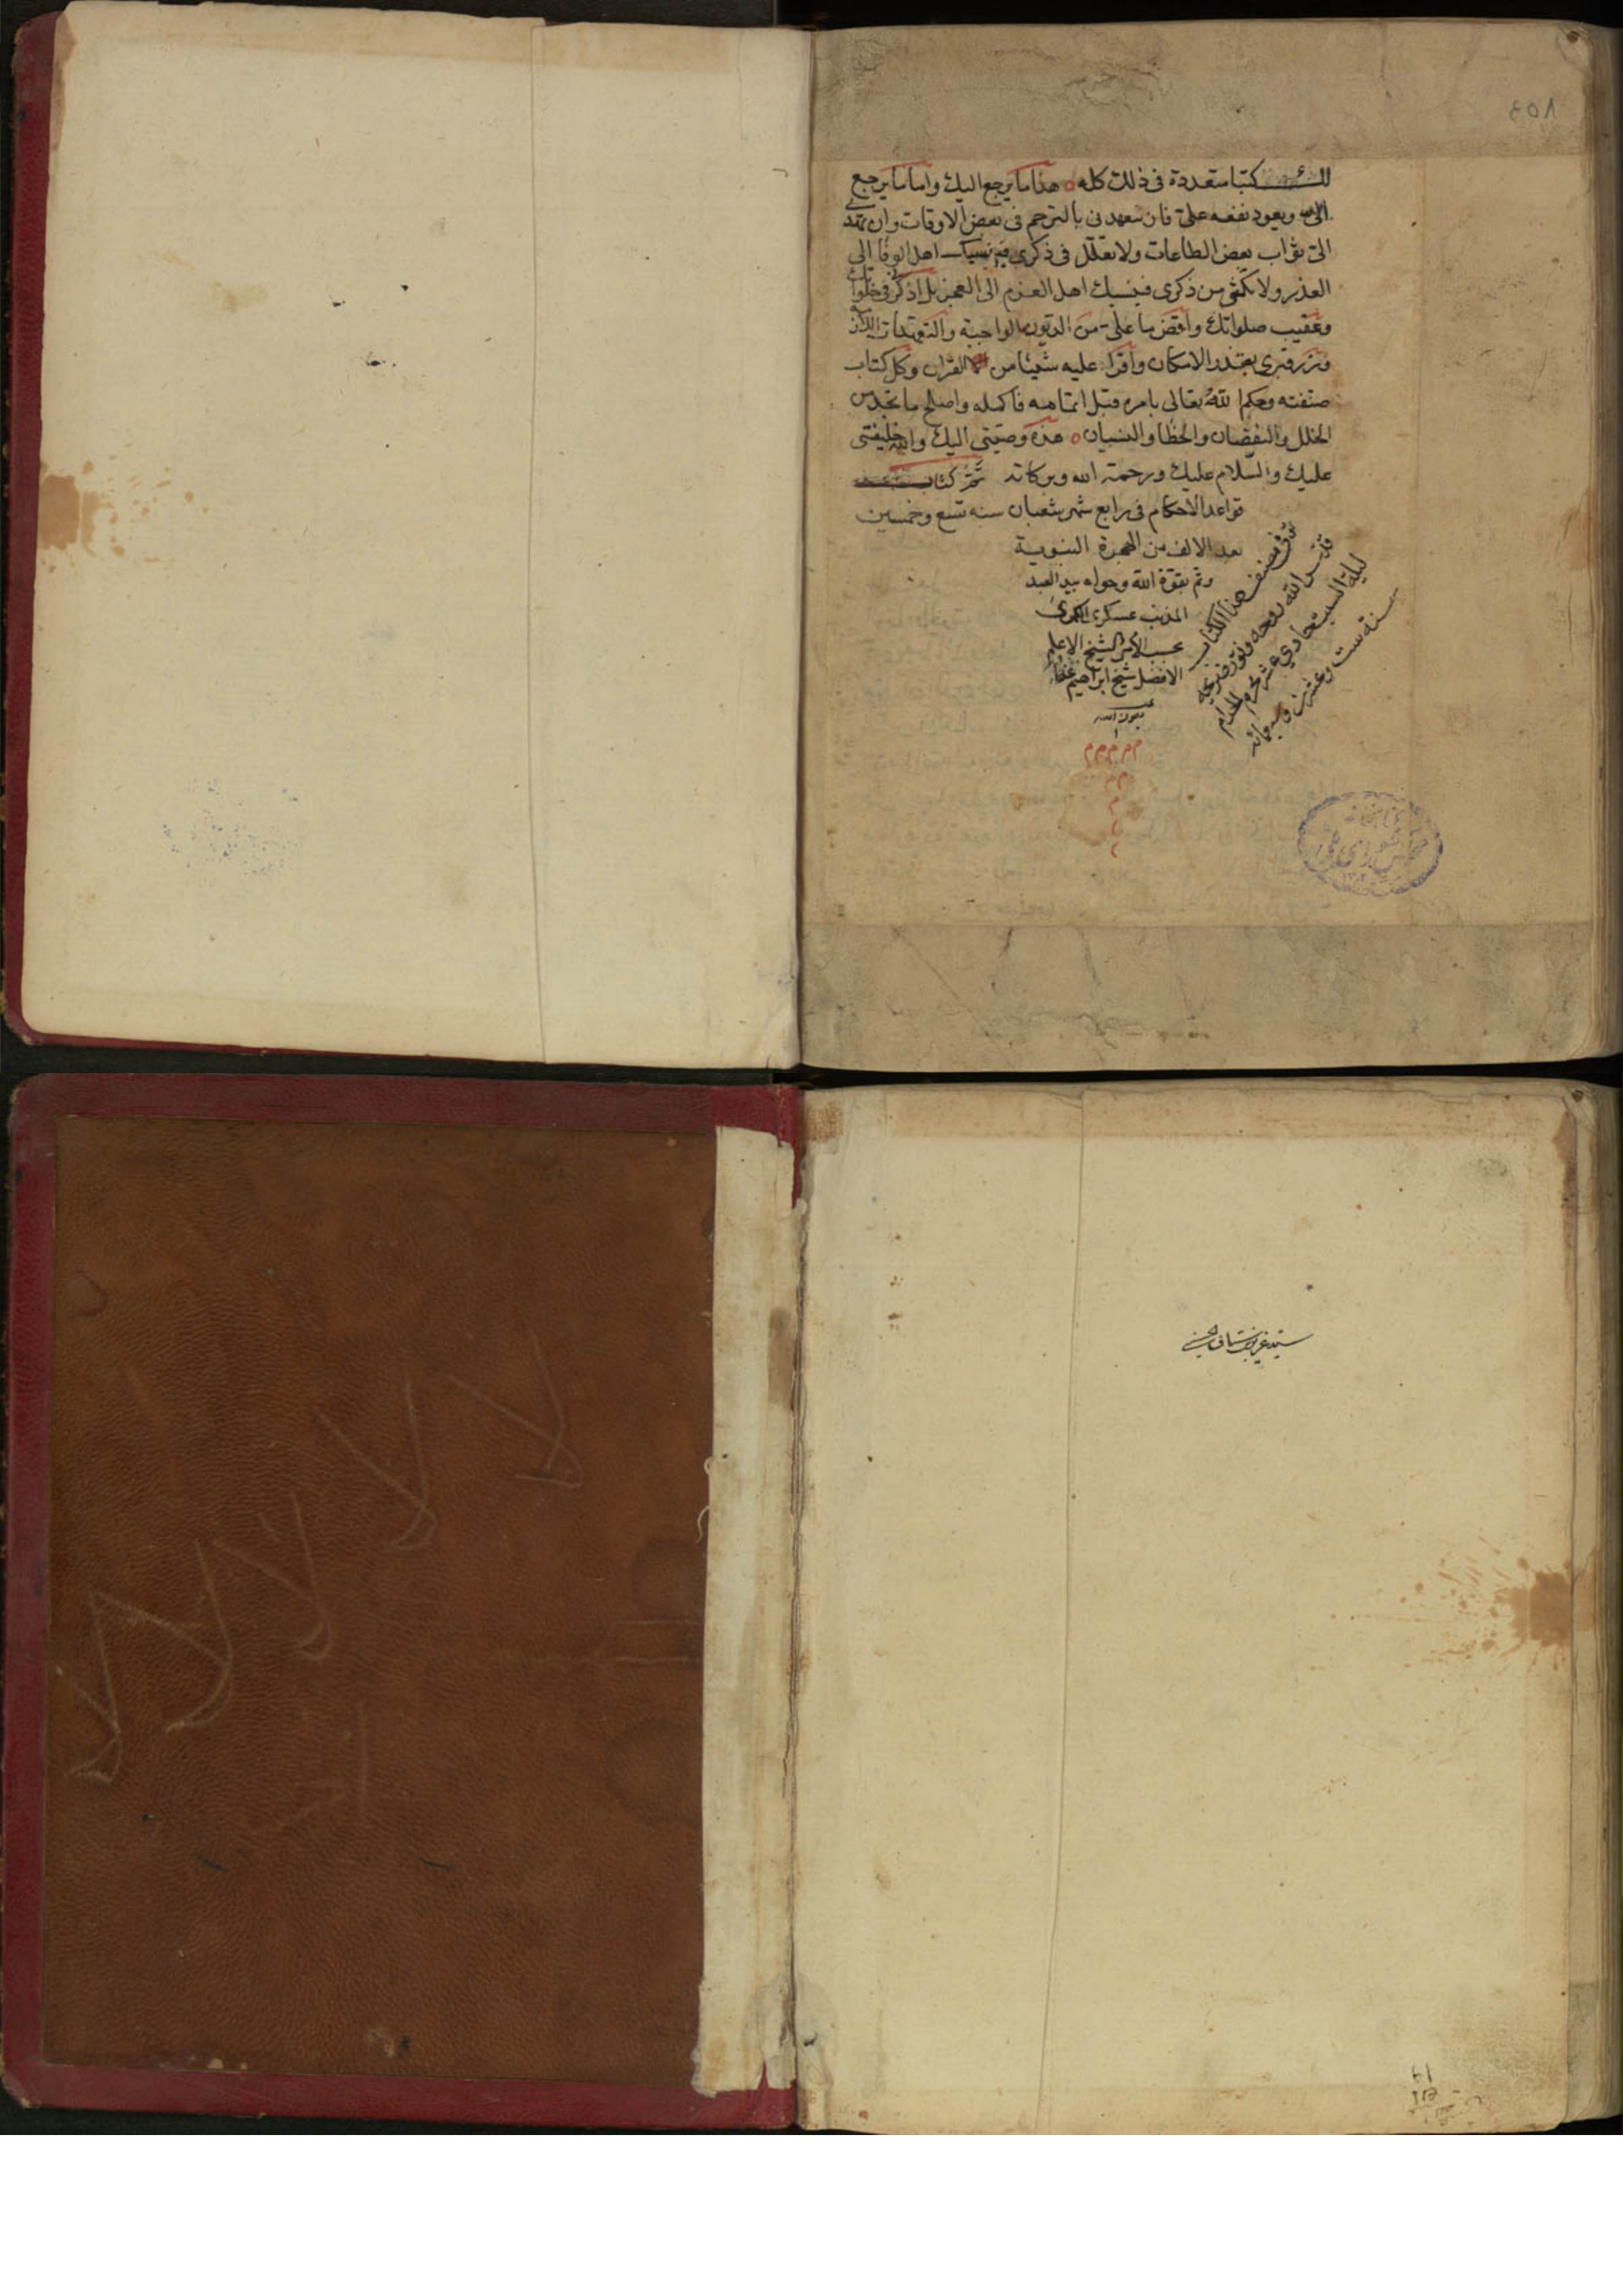 كتبا متعددة فى ذلك كله هذا ما يرجع اليك واما ما يرجع
الى ويعود نفعه على فان تتعهدنى بالترحم فى بعض الاوقات وان تهدى
الى ثواب بعض الطاعات ولا تقلل فى ذكرى فينسبك اهل الوفا الى
الغدر ولا تكثر من ذكرى فينسبك اهل العزم الى العجز بل اذكرنى فى خلواتك
وعقيب صلواتك واقض ما على من الديون الواجبة والتعهدات اللازمة
وزر قبرى بقدر الامكان واقرا عليه شيئا من القران وكل كتاب
صنفته وحكم الله تعالى بامره قبل اتمامه فاكمله واصلح ما تجده من
الخلل والنقصان والخطا والنسيان هذه وصيتى اليك والله خليفتى
عليك والسلام عليك ورحمة الله وبركاته تم كتاب
قواعد الاحكام فى رابع شهر شعبان سنه تسع وخمسين
بعد الالف من الهجرة النبوية
وتم بقوة الله وحوله بيد العبد
المذنب عسكرى
حسب الامر الشيخ الاعلم
الافضل شيخ ابراهيم
بعون الله
توفى مصنف هذا الكتاب
قدس الله روحه ونور ضريحه
ليلة السبت حادى عشر محرم الحرام
سنة ست وعشرين وسبعمائه
م م م م م
م م
م
كتابخانه
مجلس شوراى ملى
٨٥٤